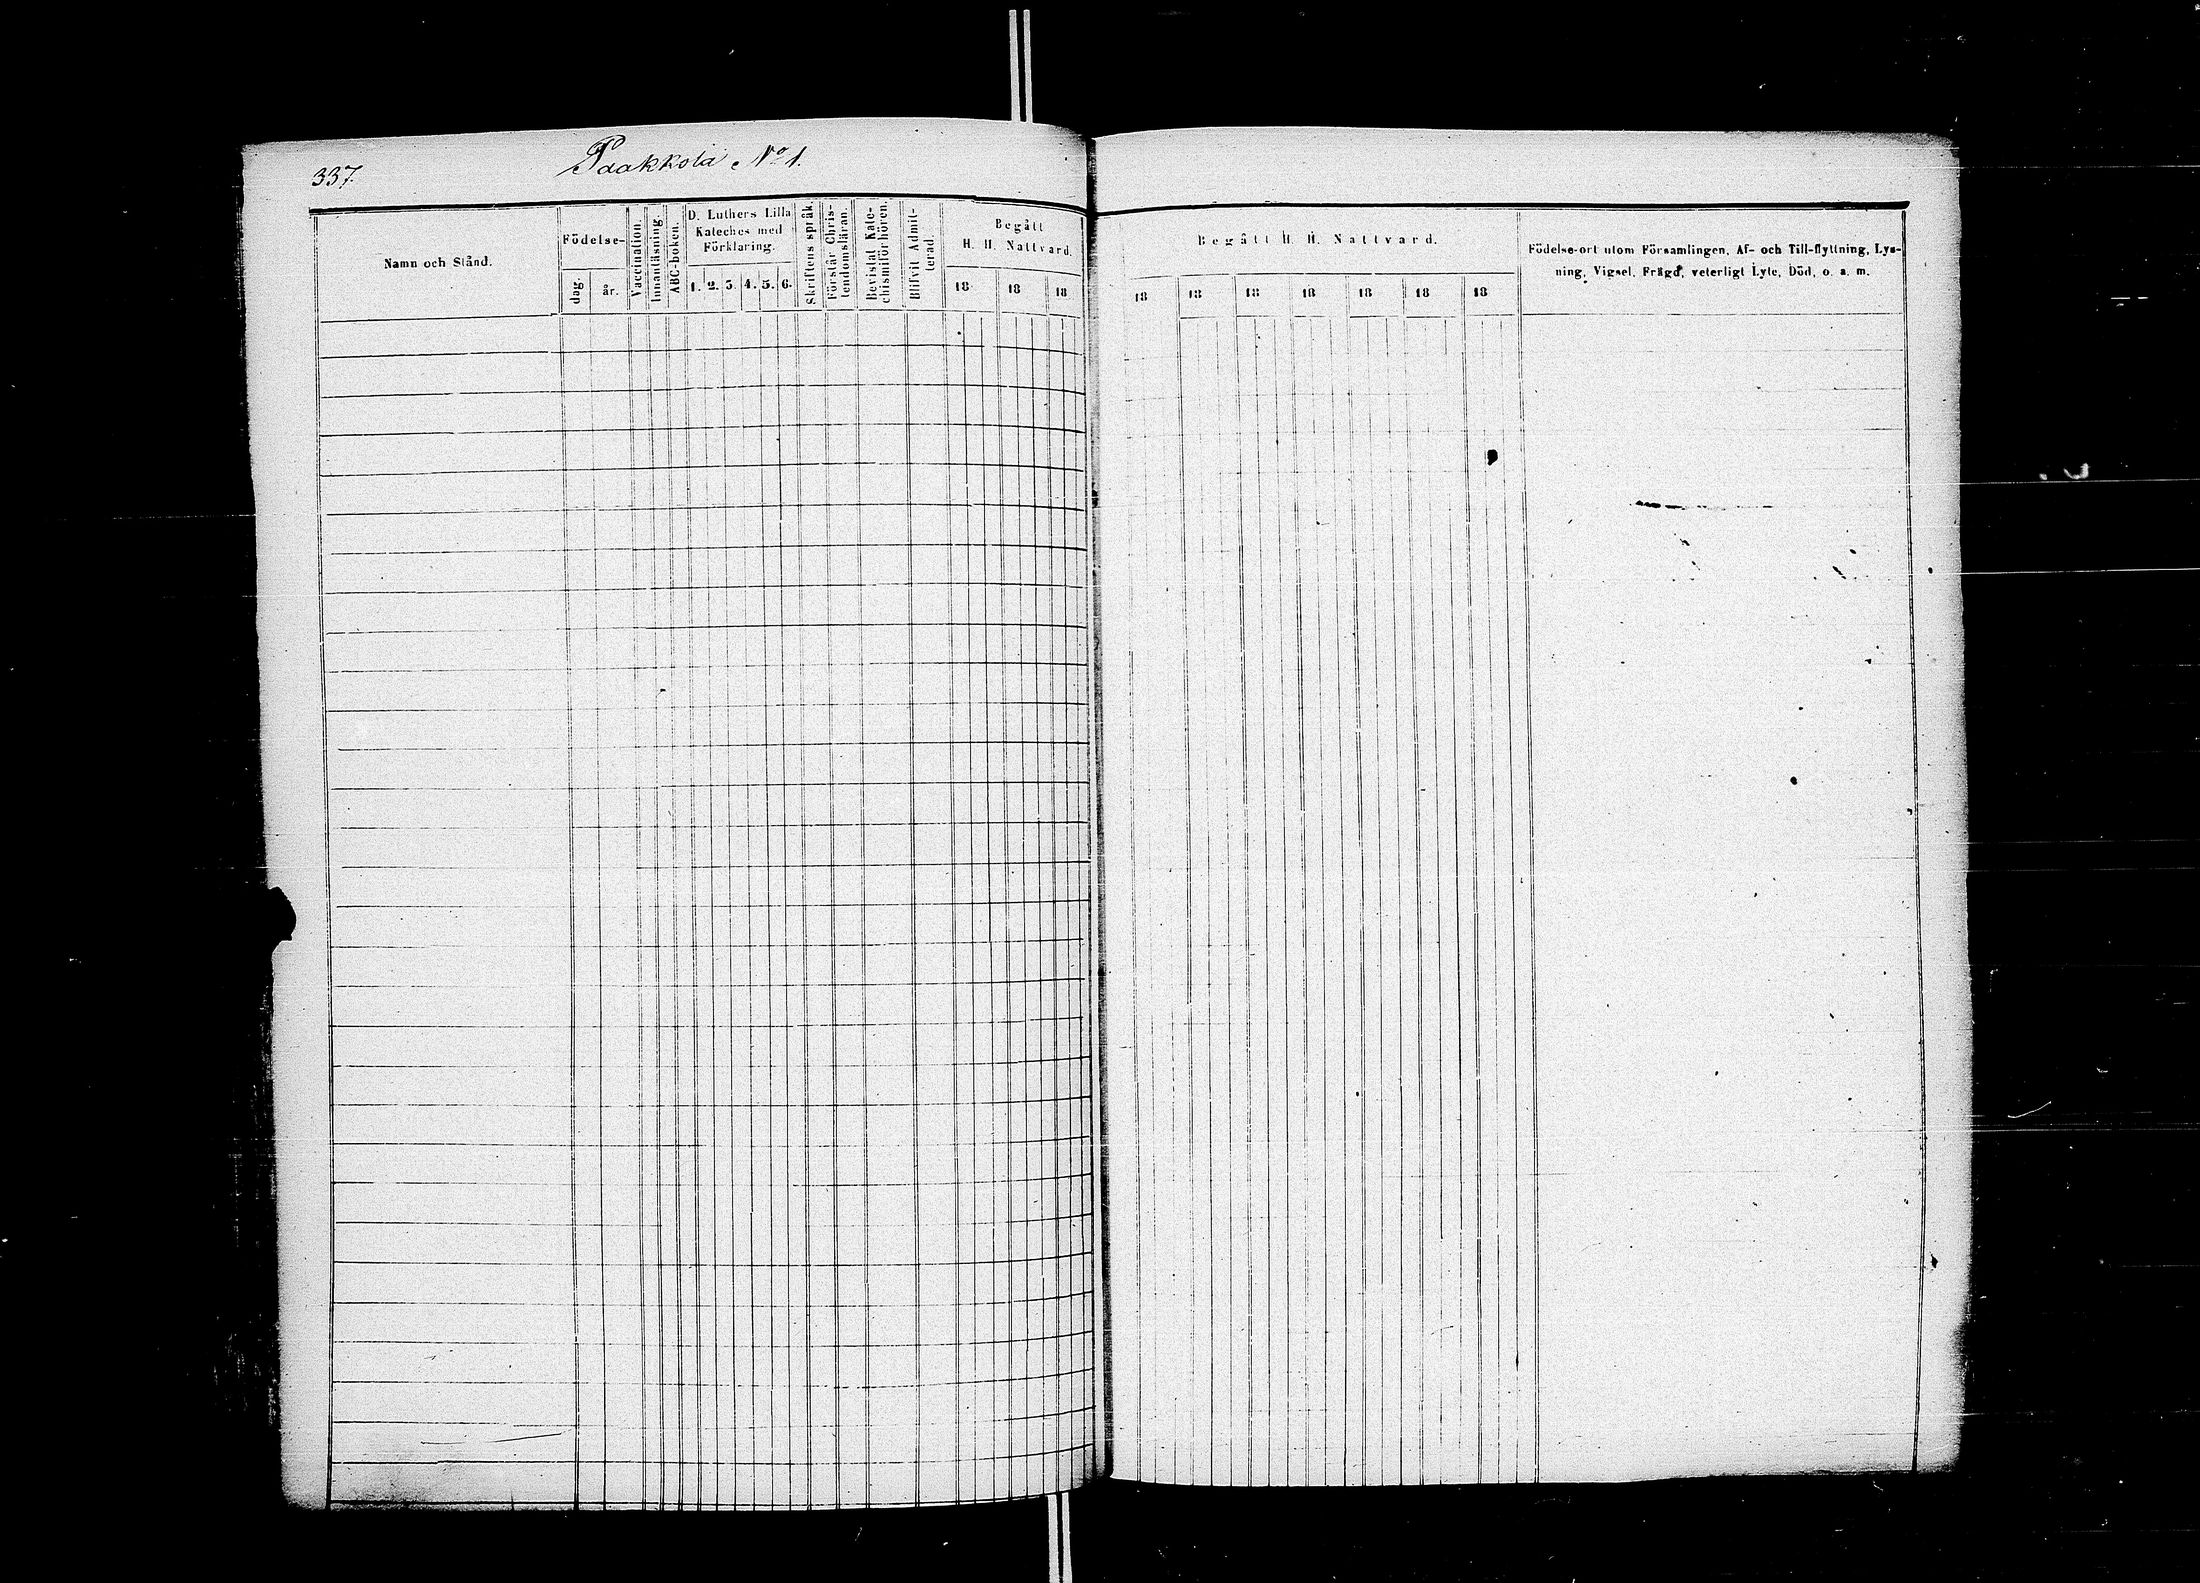 337.
Paakkola No 1.
Namn och Stånd.
Födelse-
dag.
år.
Vaccination.
Innanläsning.
ABC-boken.
D. Luthers Lilla
Kateches med
Förklaring.
1. 2. 3. 4. 5. 6.
Skriftens språk.
Förstår Chris-
tendomsläran.
Bevistat Kate-
chismiförhören.
Blifvit Admit-
terad.
Begått
H. H. Nattvard.
18 18 18
Begått H. H. Nattvard.
18 18 18 18 18 18 18
Födelse-ort utom Församlingen, Af- och Till-flyttning, Lys-
ning, Vigsel, Frägd, veterligt Lyte, Död, o. a. m.